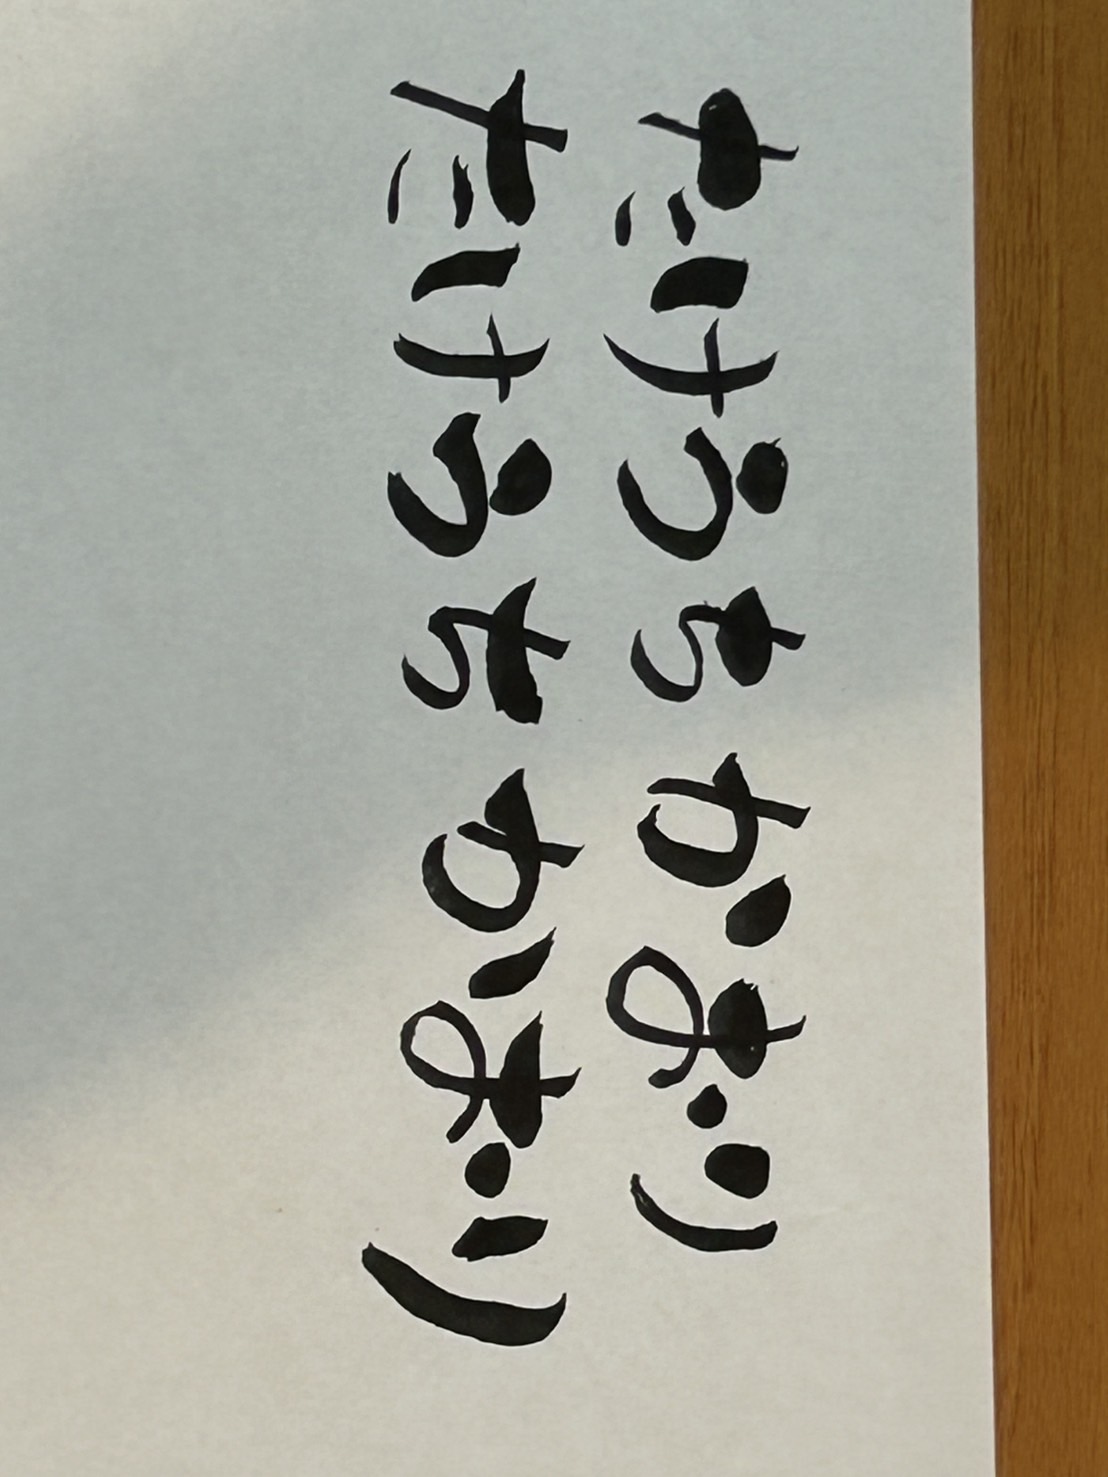 たけうちかおり
たけうちかおり